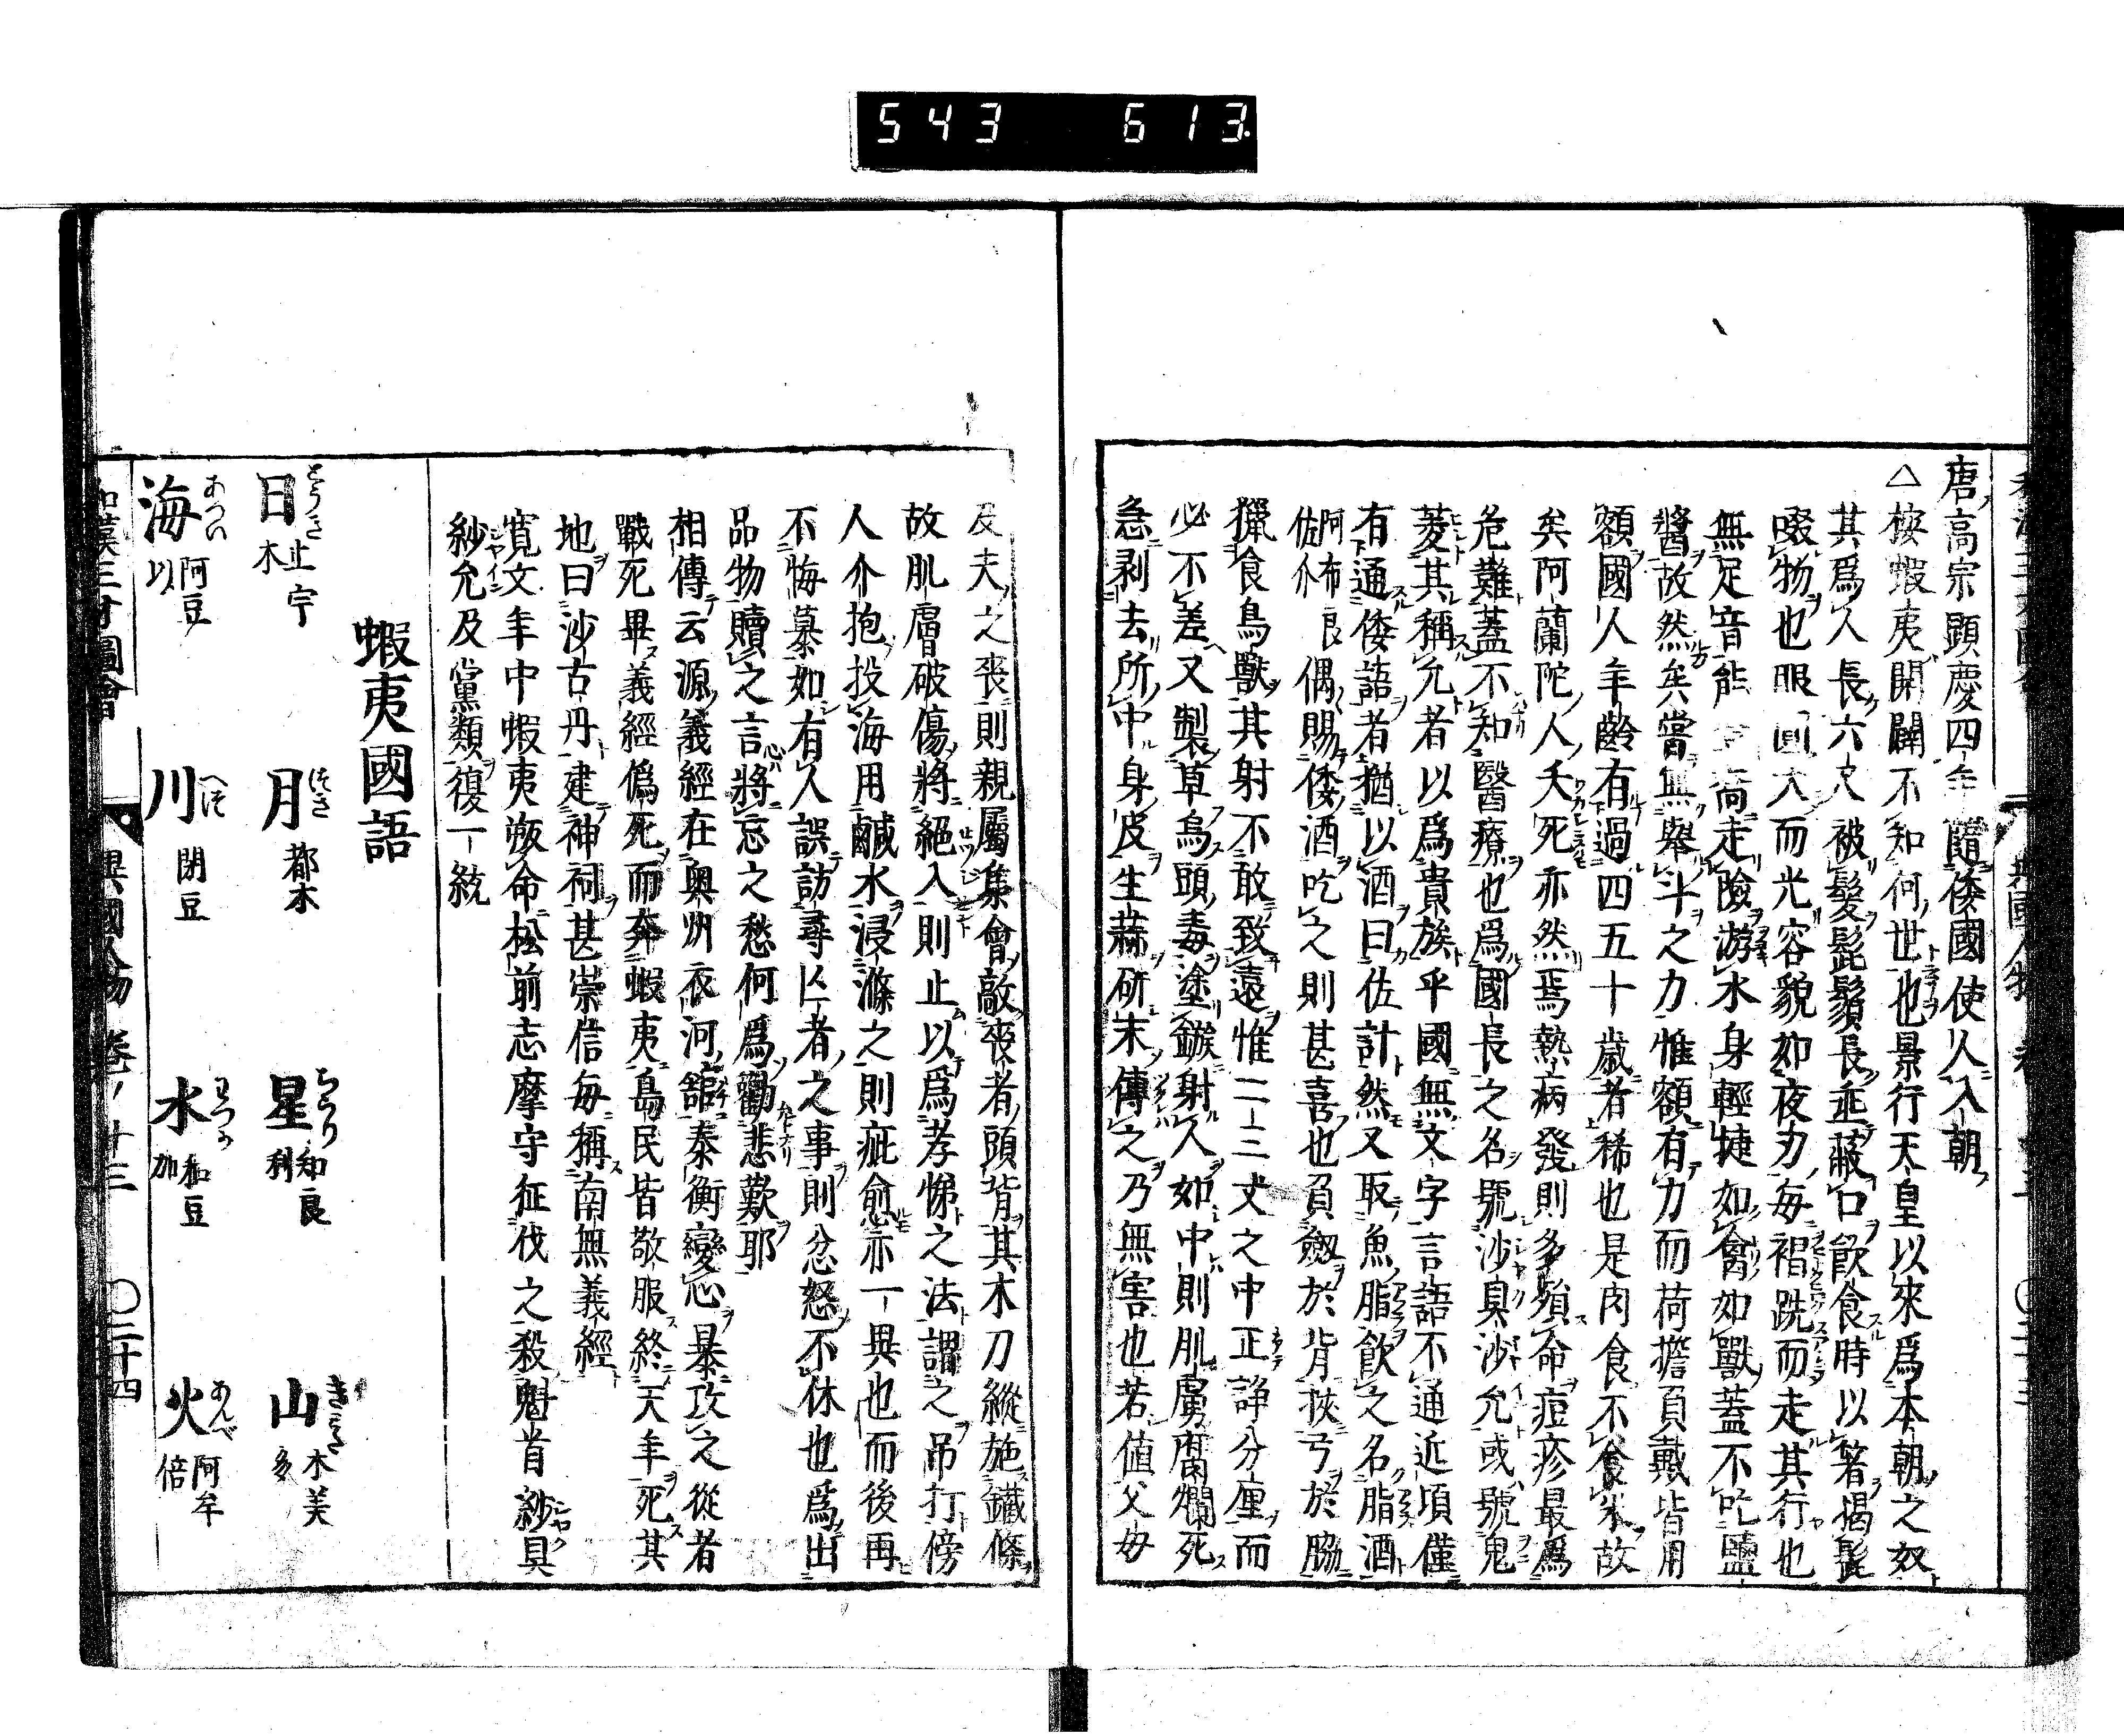 543 613
唐高宗顕慶四年隨倭國使人入朝
△按蝦夷開闢不知何世也景行天皇以來爲本朝之奴
其爲人長六尺被髮髭鬚長垂蔽口飮食時以箸揭髭
啜物也眼圓大而光容貌如夜刃毎裙跣而走其行也
無足音能 走險游水身輕捷如禽如獸蓋不吃鹽
醬故然矣嘗無舉斗之力惟額有力而荷擔負戴皆用
額國人年齡有過四五十歲者稀也是肉食不食米故
矣阿蘭陀人夭死亦然焉熱病發則多殞命痘疹最爲
危難蓋不知醫療也爲國長之名號沙臭沙允或號鬼
菱其稱允者以爲貴族乎國無文字言語不通近頃僅
有通倭語者猶以酒曰佐計然又取魚脂飮之名脂酒
阿布良佐介偶賜倭酒吃之則甚喜也負劔於背挾弓於脇
獵食鳥獸其射不敢致遠惟二三丈之中正諍分厘而
必不差又製草烏頭毒塗鏃射人如中則肌膚腐爛死
急剥去所中身皮生蒜研末傅之乃無害也若値父母
及夫之喪則親屬集會敵喪者頭背其木刀縱施鐵條
故肌膚破傷將絕入則止以爲孝悌之法謂之吊打傍
人介抱投海用鹹水浸滌之則疵愈亦一異也而後再
不悔慕如有人誤訪尋亡者之事則忿怒不休也爲出
品物贖之言將忘之愁何爲勸悲歎耶
相傳云源義經在奥州衣河舘泰衡變心暴攻之從者
戰死畢義經僞死而奔蝦夷島民皆敬服終天年死其
地曰沙古丹建神祠甚崇信毎稱南無義經
寛文年中蝦夷叛命松前志摩守征伐之殺魁首紗具
紗允及黨類復一統
蝦夷國語
日 止宇木 月 都木 星 知良利 山 木美多
海 阿豆以 川 閉豆 水 和豆加 火 阿牟倍
和漢三才圖會 異國人物 卷ノ十三 〇二十四